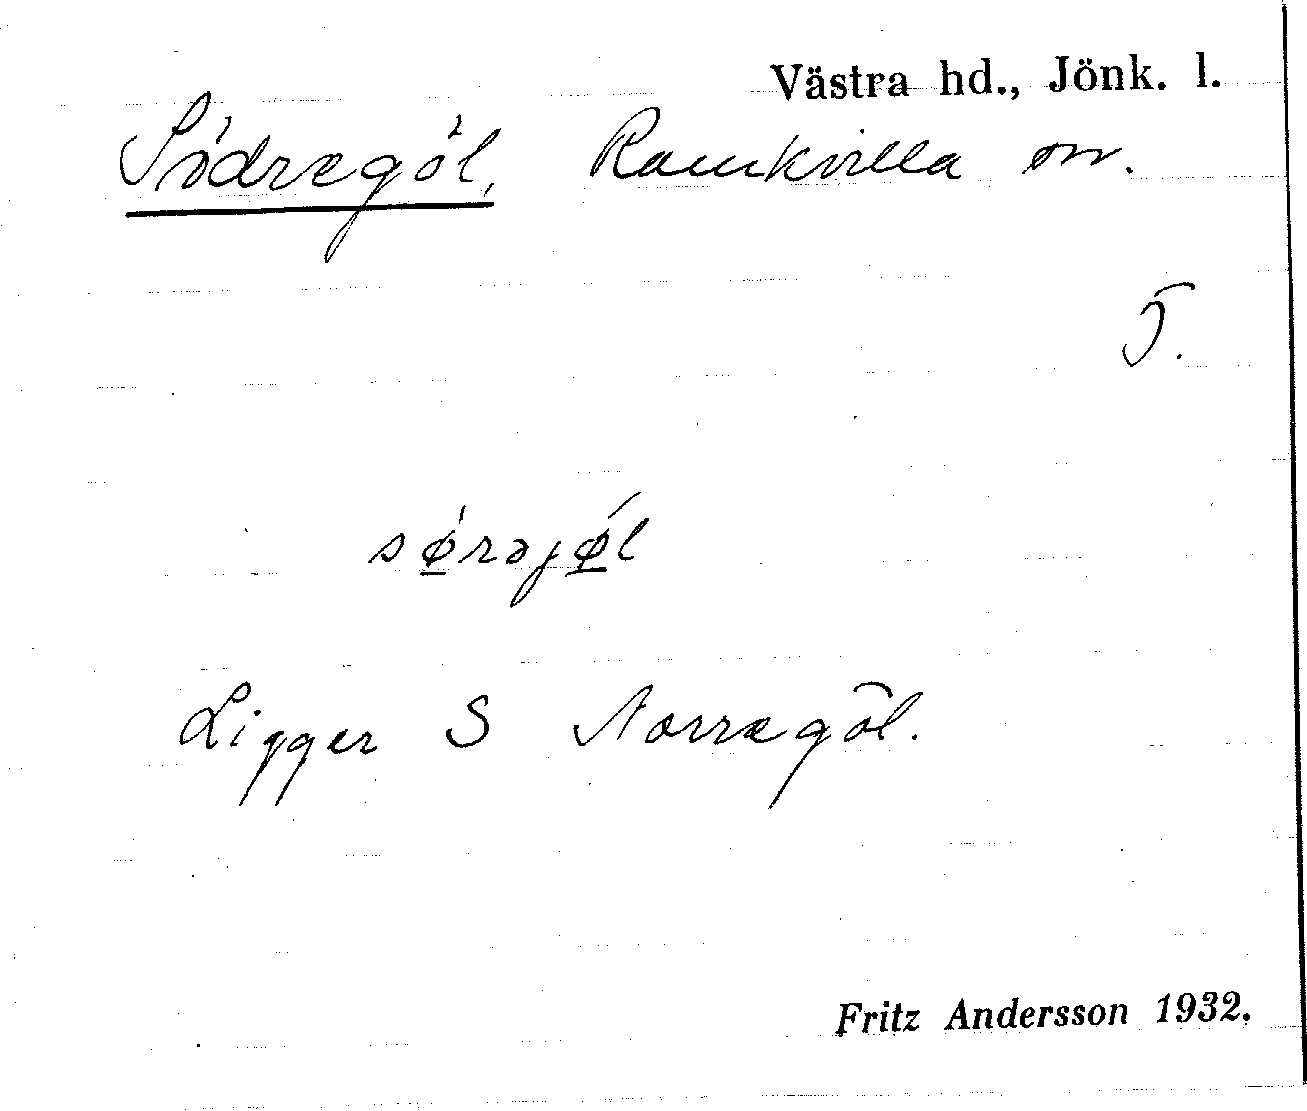 Västra hd., Jönk. l.
Södregöl, Ramkvilla sn.
T.
sǿ̲rəjǿ̲l
Ligger S Norregöl.
Fritz Andersson 1932.